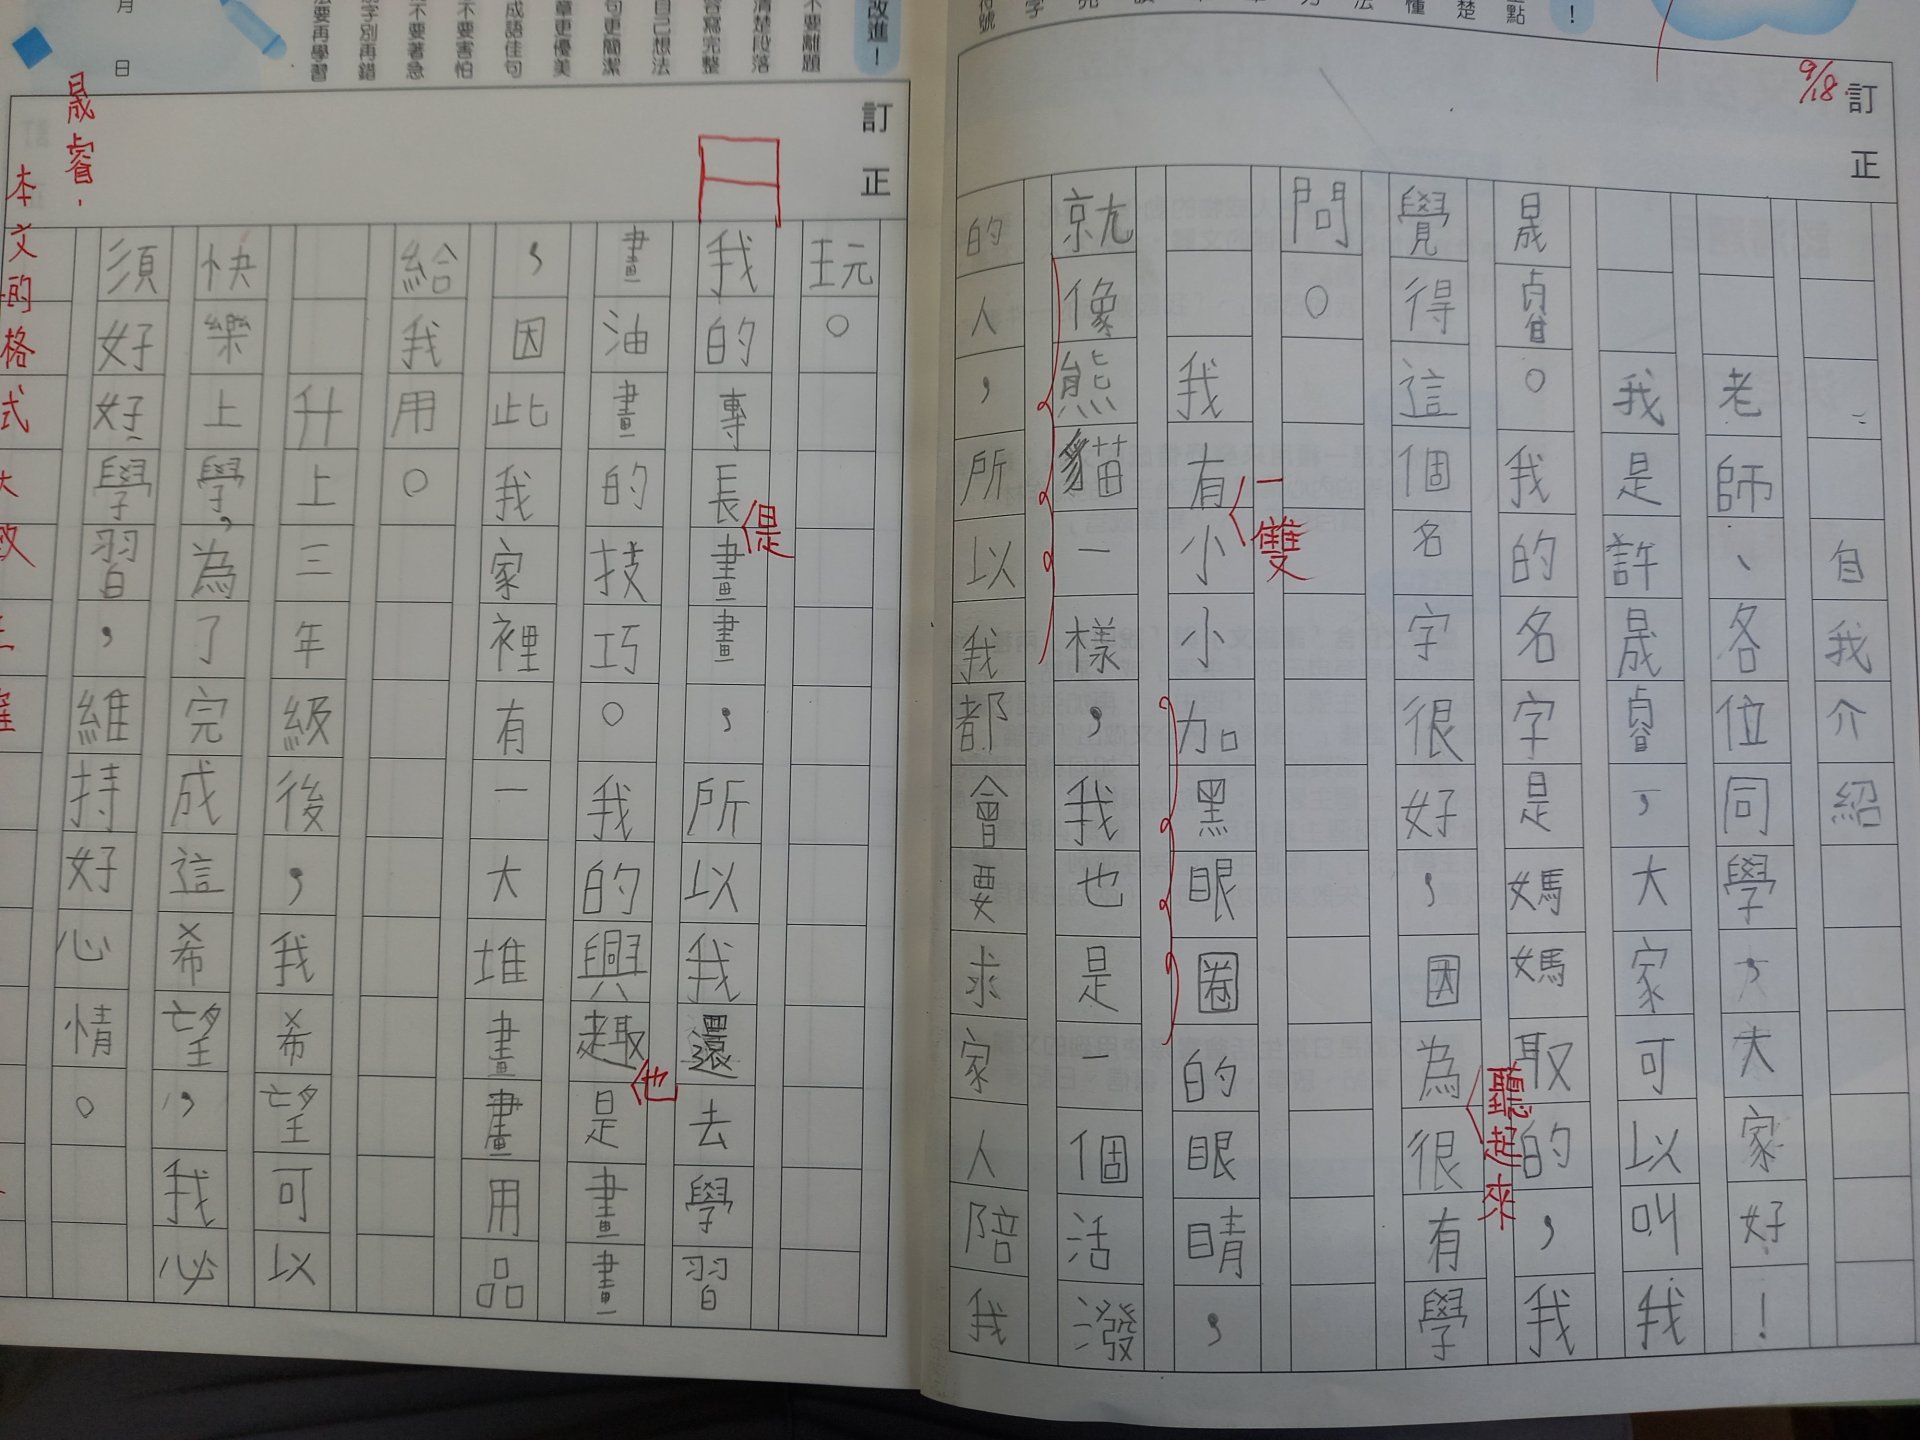 訂正
9/18
自我介紹
老師、各位同學,大家好!
我是許晟睿,大家可以叫我
晟睿。我的名字是媽媽取的,我
覺得這個名字很好,因為很有學
聽起來
問。
我有小小加黑眼圈的眼睛,
一雙
就像熊貓一樣,我也是一個活潑
的人,所以我都會要求家人陪我
訂正
玩。
我的專長畫畫,所以我還去學習
是
畫油畫的技巧。我的興趣是畫畫
也
,因此我家裡有一大堆畫畫用品
給我用。
升上三年級後,我希望可以
快樂上學,為了完成這希望,我必
須好好學習,維持好心情。
晟睿,
本文的格式大致
改進!
不要離題
清楚段落
容寫完整
自己想法
句更簡潔
章更優美
成語佳句
不要害怕
不要著急
別字別再錯
法要再學習
月 日